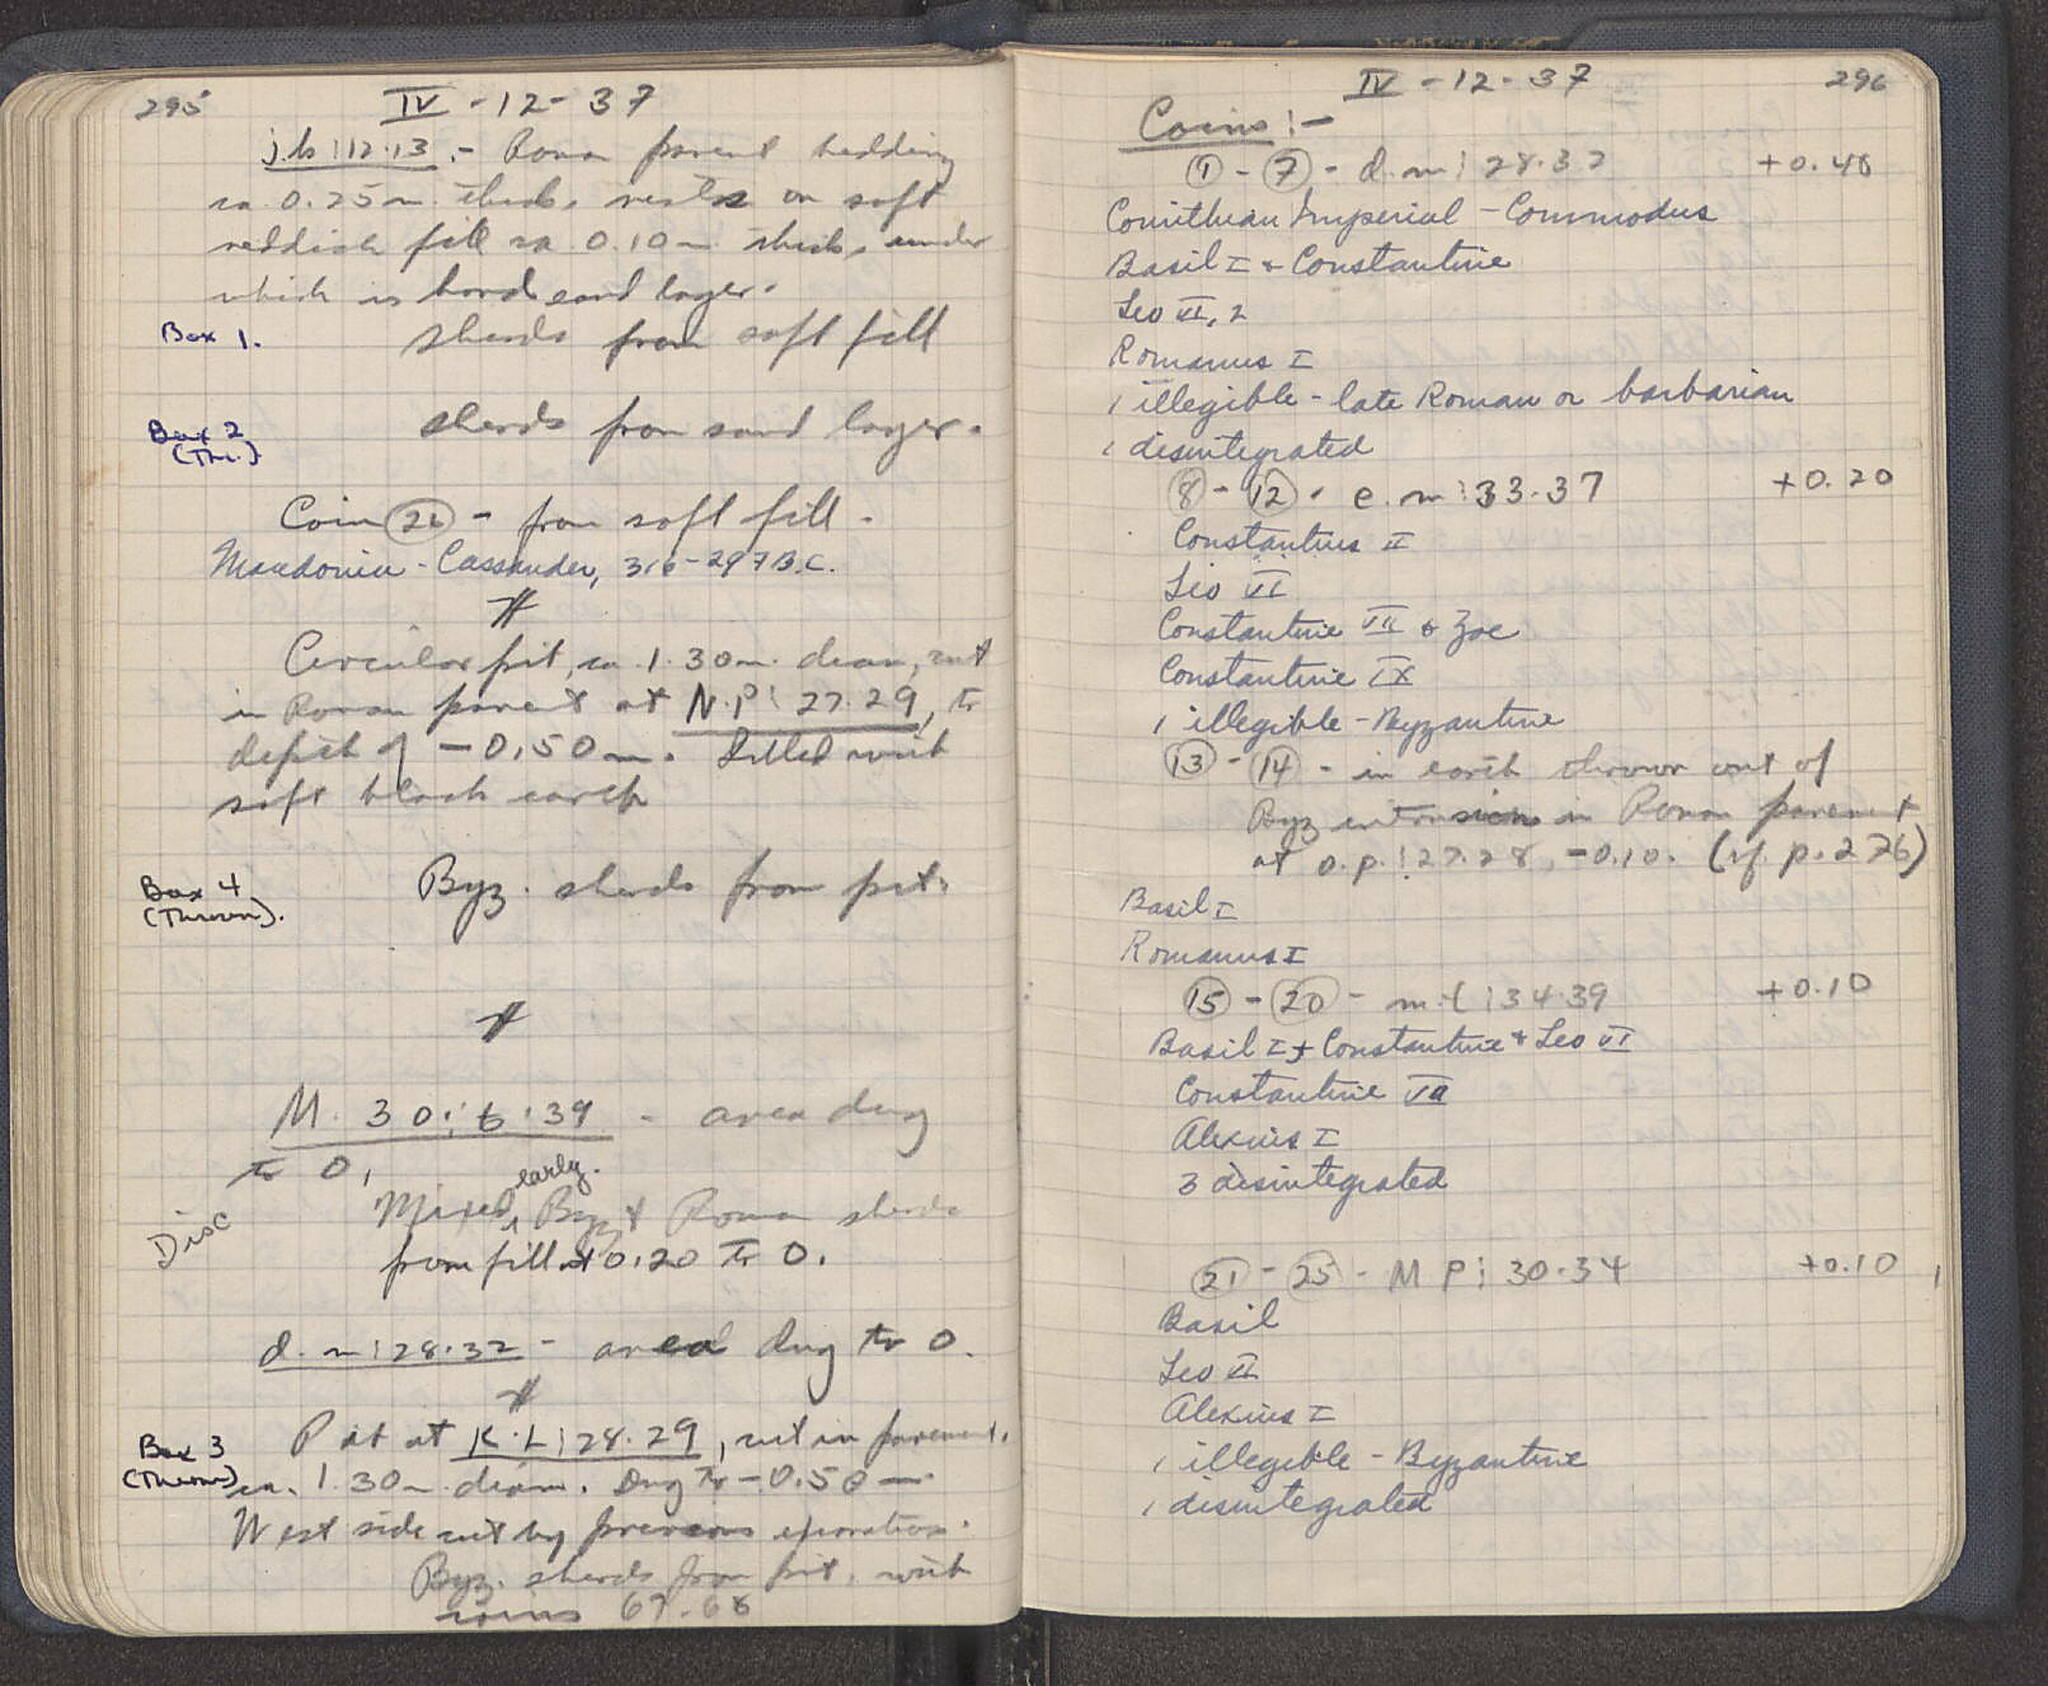 295
IV - 12 - 37
j.k : 12.13 .- Roman pavement bedding
ca 0.25 m. thick, rests on soft
reddish fill ca 0.10 m thick, under
which is hard sand layer.
Box 1. sherds from soft fill
Box 2 (Thr.) sherds from sand layer.
Coin 26 - from soft fill.
Macedonia - Cassander, 316-297 B.C.
Circular pit, ca 1.30 m. diam, cut
in Roman pavement at N.P : 27.29, to
depth of - 0.50 m. Filled with
soft black earth
Box 4 (Thrown). Byz. sherds from pit.
M. 30 : t : 39 - area dug
to 0,
Disc
Mixed, early Byz & Roman sherds
from fill +0.20 to 0.
d. m : 28.32 - area dug to 0.
Box 3 (Thrown)
Pit at K.L : 28.29, cut in pavement,
ca. 1.30 m. diam. Dug to - 0.50 m.
West side cut by previous operation.
Byz. sherds from pit, with
coins 67-68
296
IV - 12 - 37
Coins :-
1 - 7 - d.m : 28.32 +0.40
Corinthian Imperial - Commodus
Basil I & Constantine
Leo VI, 2
Romanus I
1 illegible - late Roman or barbarian
1 disintegrated
8 - 12 - e.m : 33.37 +0.20
Constantius II
Leo VI
Constantine VII & Zoe
Constantine IX
1 illegible - Byzantine
13 - 14 - in earth thrown out of
Byz intrusion in Roman pavement
at o.p. : 27.28, -0.10. (cf. p. 276)
Basil I
Romanus I
15 - 20 - m.t : 34.39 +0.10
Basil I + Constantine + Leo VI
Constantine VII
Alexius I
3 disintegrated
21 - 25 - M P : 30.34 +0.10
Basil
Leo VI
Alexius I
1 illegible - Byzantine
1 disintegrated